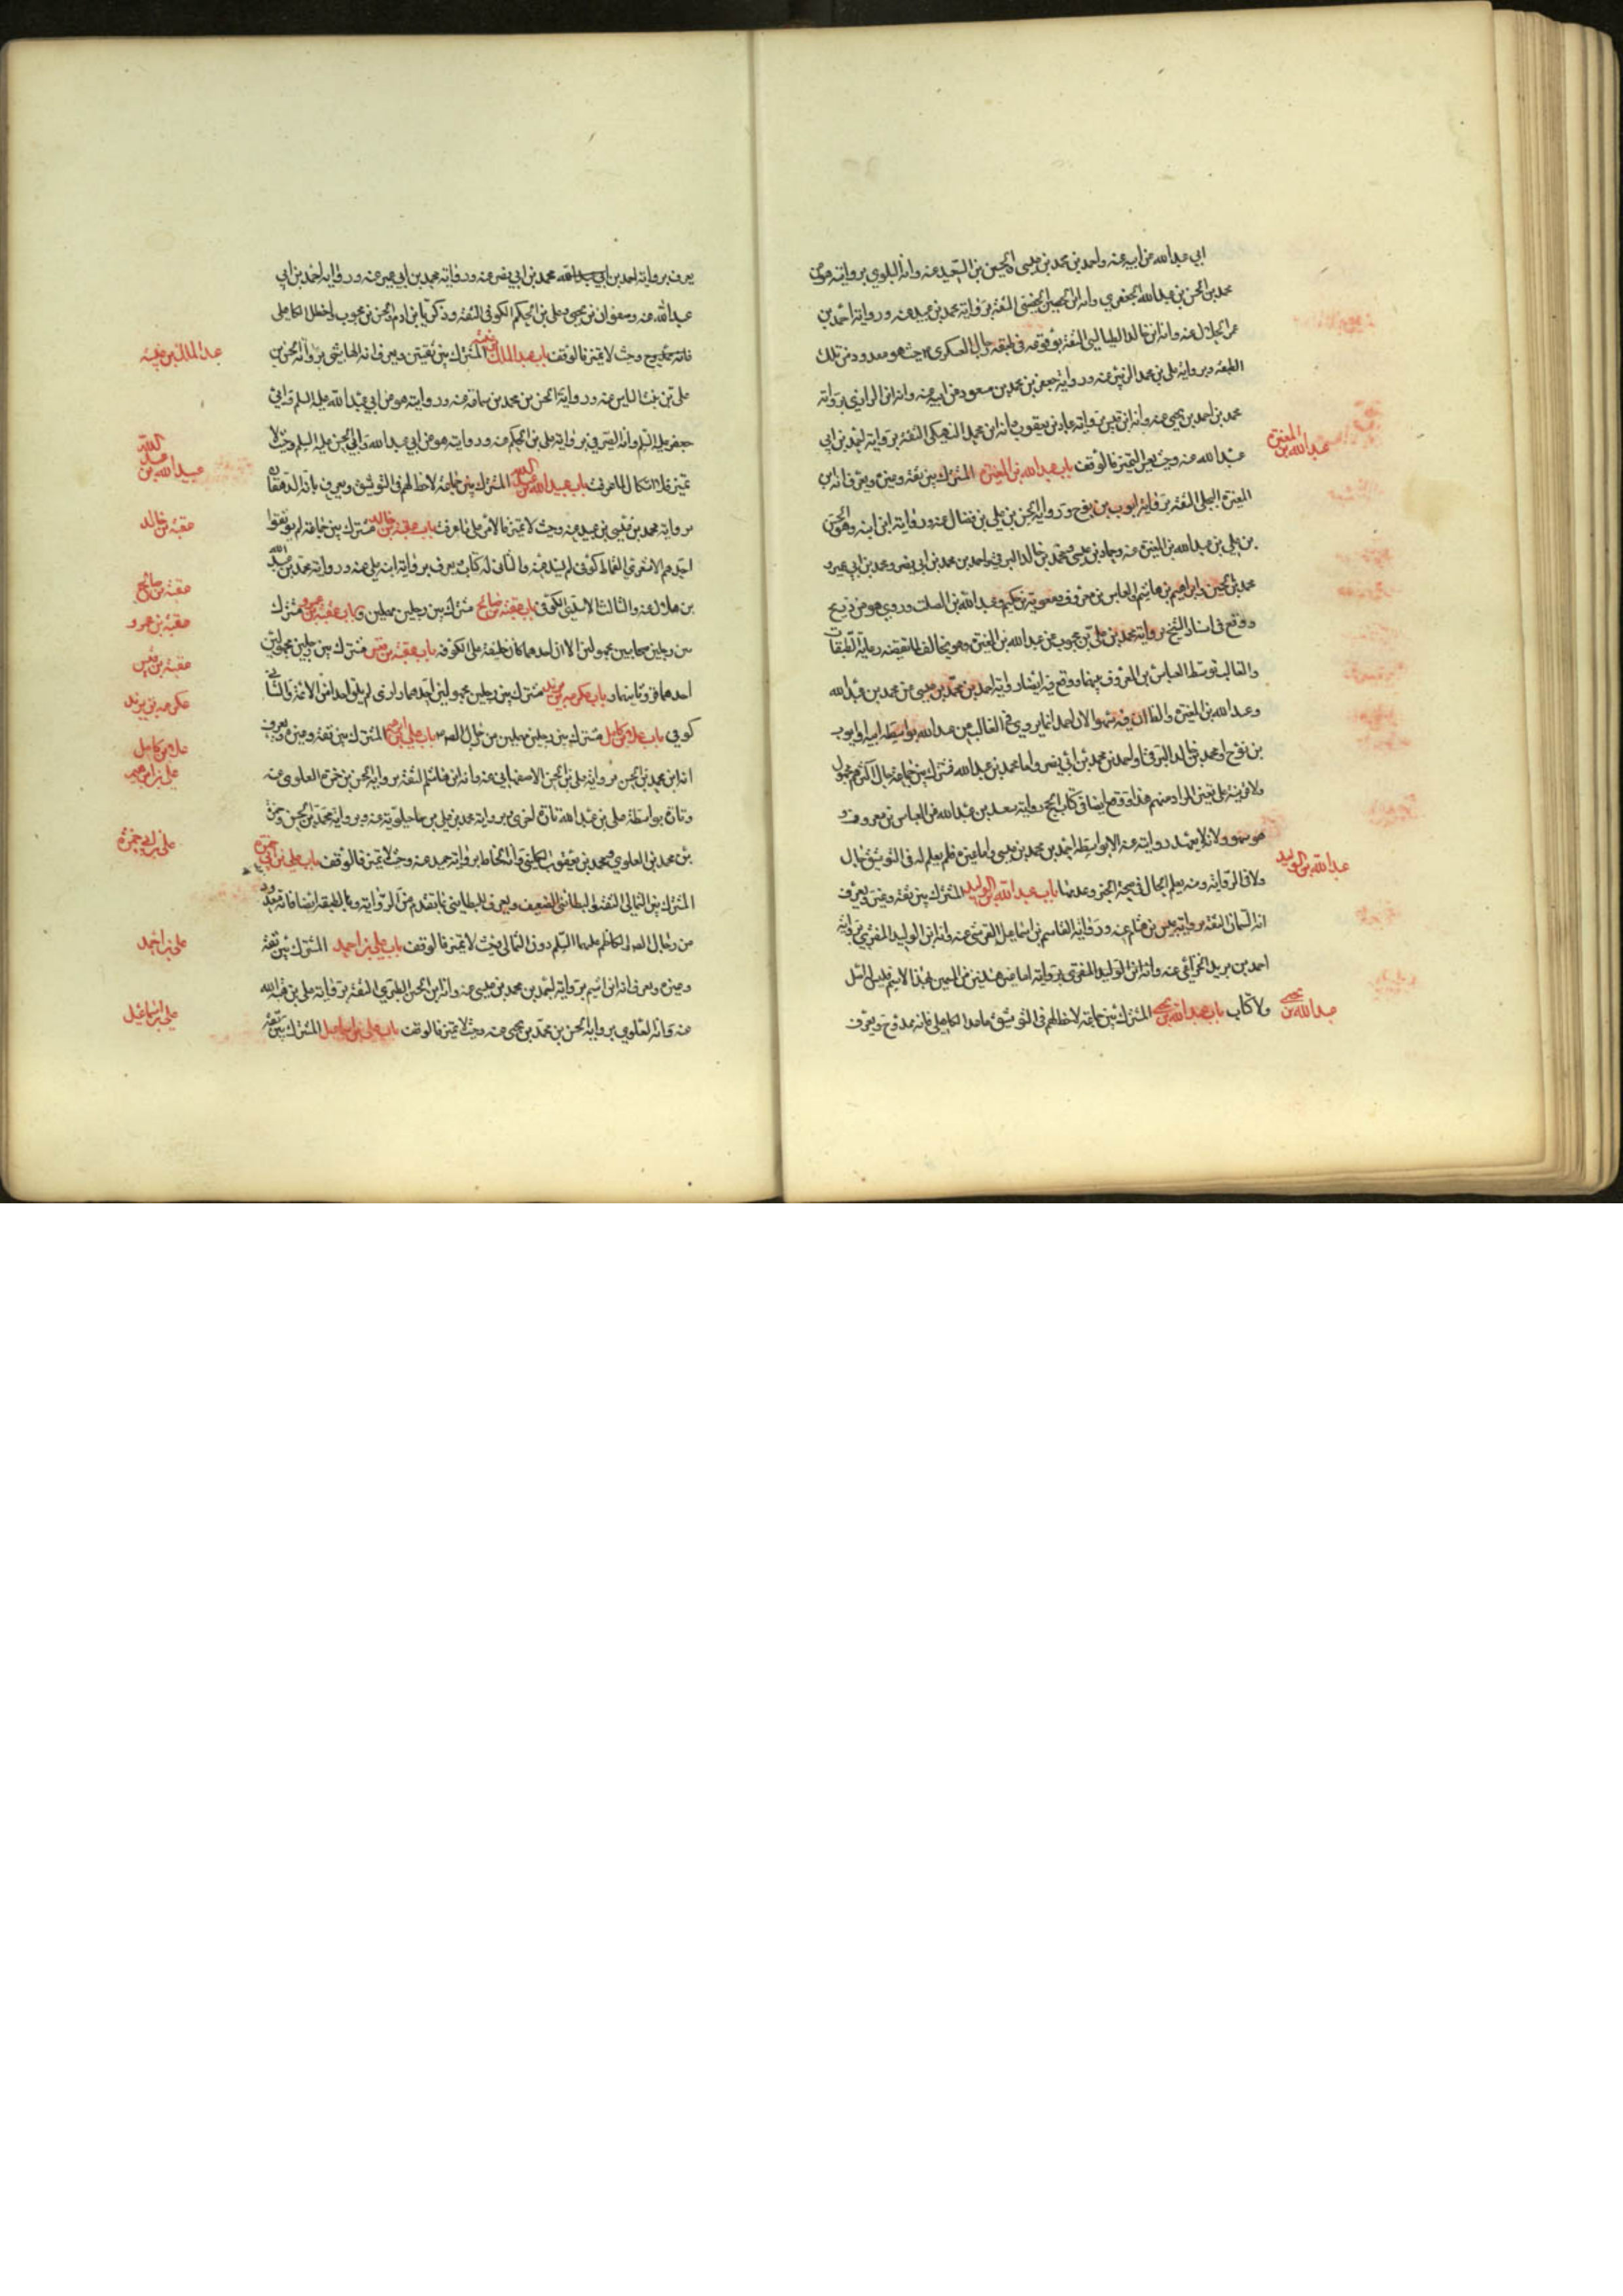 ابي عبدالله عن ابيه عنه واحمد بن محمد بن عيسى الحسين بن السعيد عنه وانه البلوي بروايته هو عن
محمد بن الحسن بن عبدالله الجعفري وانه ابن الحصين الثقة برواية محمد بن عنه ورواية احمد بن
عمر الحلال عنه وانه ابن خالد الطيالسي الثقة بوقوعه في طبقة رجال العسكري حيث هو معدود من تلك
الطبقة وبرواية علي بن محمد عنه ورواية جعفر بن محمد بن مسعود عن ابيه عنه وانه ابن الراوندي برواية
محمد بن احمد بن يحيى عنه وانه ابن برواية عباد بن يعقوب وانه ابن محمد النهيكي الثقة برواية احمد بن ابي
عبدالله عنه وحيث يعسر التميز فالوقف باب عبدالله بن المغيرة المشترك بين ثقة وغيره ويعرف انه ابن
المغيرة البجلي الثقة برواية ايوب بن نوح ورواية الحسن بن علي بن فضال عنه ورواية ابن ابنه وهو الحسن
بن علي بن عبدالله بن المغيرة عنه وحماد بن عيسى ومحمد بن خالد البرقي واحمد بن محمد بن ابي نصر ومحمد بن ابي عمير و
محمد بن الحسين وابراهيم بن هاشم والعباس بن معروف ومعوية بن حكيم وعبدالله بن الصلت وروى هو عن ذريح
ووقع في اسناد الشيخ برواية محمد بن علي بن محبوب عن عبدالله بن المغيرة وهو مخالف لما تقتضيه رعاية الطبقات
والغالب توسط العباس بن المعروف بينهما ووقع فيه ايضا رواية احمد بن محمد بن عيسى عن محمد بن عبدالله
وعبدالله بن المغيرة والظاهر ان فيه سهوا لان احمد انما يروي في الغالب عن عبدالله بواسطة ابيه او ايوب
بن نوح او محمد بن خالد البرقي او احمد بن محمد بن ابي نصر واما محمد بن عبدالله فمشترك بين جماعة حال اكثرهم مجهول
ولا قرينة على تعيين المراد منهم هذا ووقع ايضا في كتاب الحج رواية سعد بن عبدالله عن العباس بن معروف
هو سهو ولانه لا يعهد روايته عنه الا بواسطة احمد بن محمد بن عيسى واما غيره فلم يعلم له في التوثيق حال
ولا في الرواية ومنه يعلم الحال في صحة الخبر وعدمها باب عبدالله بن الوليد المشترك بين ثقة وغيره ويعرف
انه السمان الثقة برواية عبيس بن هشام عنه ورواية القاسم بن اسماعيل القرشي عنه وانه ابن الوليد المقري برواية
احمد بن يزيد الخزاعي عنه وانه ابن الوليد المقري بروايته اما غير هذين من المسمين بهذا الاسم فليس له اصل
ولا كتاب باب عبدالله بن يحيى المشترك بين جماعة لا حظ لهم في التوثيق ما عدا الكاهلي فانه ممدوح ويعرف
المغيرة
عبدالله بن
عبدالله بن الوليد
يحيى
عبدالله بن
يعرف برواية احمد بن محمد بن ابي نصر عنه ورواية محمد بن ابي عمير عنه ورواية احمد بن ابي
عبدالله عنه وصفوان بن يحيى وعلي بن الحكم الكوفي الثقة وزكريا بن ادم والحسن بن محبوب الكاهلي
فانه ممدوح وحيث لا تميز فالوقف باب عبدالملك بن عتبة المشترك بين ثقيتين ويعرف انه الهاشمي برواية الحسن بن
علي بن بنت الياس عنه ورواية الحسن بن محمد بن سماعة عنه وروايته هو عن ابي عبدالله عليه السلم وابي
جعفر عليه السلم وانه الصيرفي برواية علي بن الحكم عنه وروايته هو عن ابي عبدالله وابي الحسن عليه السلم وحيث لا
تميز فلا اشكال لما عرفت باب عبيدالله بن عبدالله المشترك بين جماعة لا حظ لهم في التوثيق ويعرف بانه الدهقان
برواية محمد بن عيسى بن عبيد عنه وحيث لا تميز فالامر على ما عرفت باب عقبة بن خالد مشترك بين جماعة لم يوثقوا
احدهم الاشعري القماط كوفي لم والثاني له كتاب يعرف برواية ابنه علي عنه ورواية محمد بن عبدالله
بن هلال عنه والثالث الاسدي الكوفي باب عقبة بن صالح مشترك بين رجلين مهملين وباب عقبة بن عمرو مشترك
بين رجلين صحابيين مجهولين الا ان احدهما كان خليفة على الكوفة باب عقبة بن قيس مشترك بين رجلين مجهولين
احدهما وثانيهما باب عكرمة بن يزيد مشترك بين رجلين مجهولين احدهما لم يلق احدا من الائمة والثاني
كوفي باب مشترك بين رجلين مهملين من رجال الصادق باب علي بن ابراهيم المشترك بين ثقة وغيره ويعرف
انه ابن محمد بن الحسن برواية علي بن الحسن الاصفهاني عنه وانه ابن هاشم الثقة برواية الحسن بن حمزة العلوي عنه
وتارة بواسطة علي بن عبدالله تارة اخرى برواية محمد بن علي بن ماجيلويه عنه وبرواية محمد بن الحسن وحمزة
بن محمد بن العلوي ومحمد بن يعقوب الكليني وانه الخياط برواية حميد عنه وحيث لا تميز فالوقف باب علي بن ابي حمزة
المشترك بين الثمالي الثقة والبطائني الضعيف ويعرف البطايني بما تقدم من الرواية وبالطبقة ايضا فانه معدود
من رجال الصادق والكاظم عليهما السلم دون الثمالي وحيث لا تميز فالوقف باب علي بن احمد المشترك بين ثقة
وغيره ويعرف انه ابن اشيم برواية احمد بن محمد بن عيسى عنه وانه ابن الحسن الطبري الثقة برواية علي بن هبةالله
عنه وانه العلوي برواية الحسن بن محمد بن يحيى عنه وحيث لا تميز فالوقف باب علي بن اسماعيل المشترك بين ثقة
عبدالملك بن عتبة
عبدالله
عبيدالله بن
عقبة بن خالد
عقبة بن صالح
عقبة بن عمرو
عقبة بن قيس
عكرمة بن يزيد
علي بن ابراهيم
علي بن ابي حمزة
علي بن احمد
علي بن اسماعيل